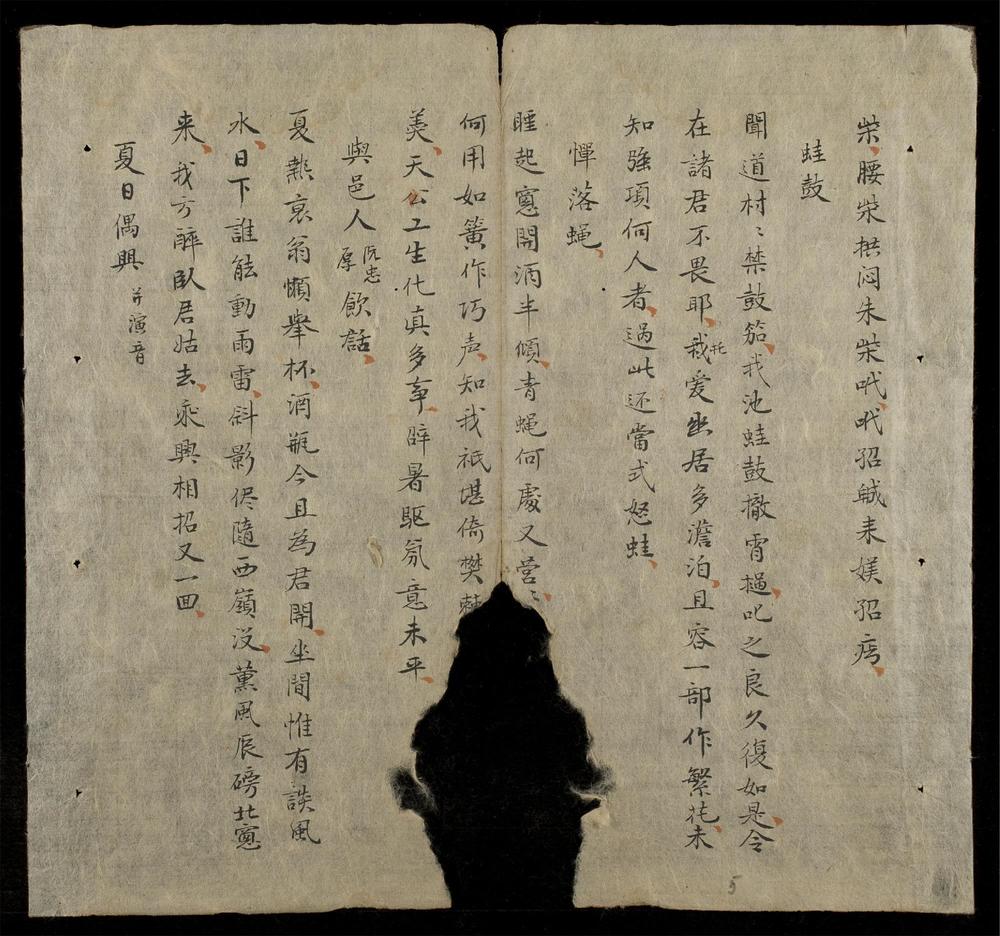 柴、腰柴拱闷朱柴吠、吠㧅醎耒媄㧅疠、
蛙鼓
聞道村〻禁鼓笳、我池蛙鼓撤宵撾、叱之良久復如是、今
在諸君不畏耶、我托爱幽居多澹泊、且容一部作繁花、未
知強項何人者、過此还當式怒蛙、
憚落蝇、
睡起窓開酒半傾、青蝇何處又营〻、
何用如簧作巧声、知我祇堪倚樊棘
羙、天公工生化真多事、辟暑駆氛意未平、
與邑人阮忠厚飲話、
夏熱衰翁懶舉杯、酒瓶今且為君開、坐間惟有談風
水、日下誰能動雨雷、斜影侭隨西嶺沒、薰風辰磅北窓
来、我方醉臥居姑去、乘興相招又一回、
夏日偶興 并演音
5